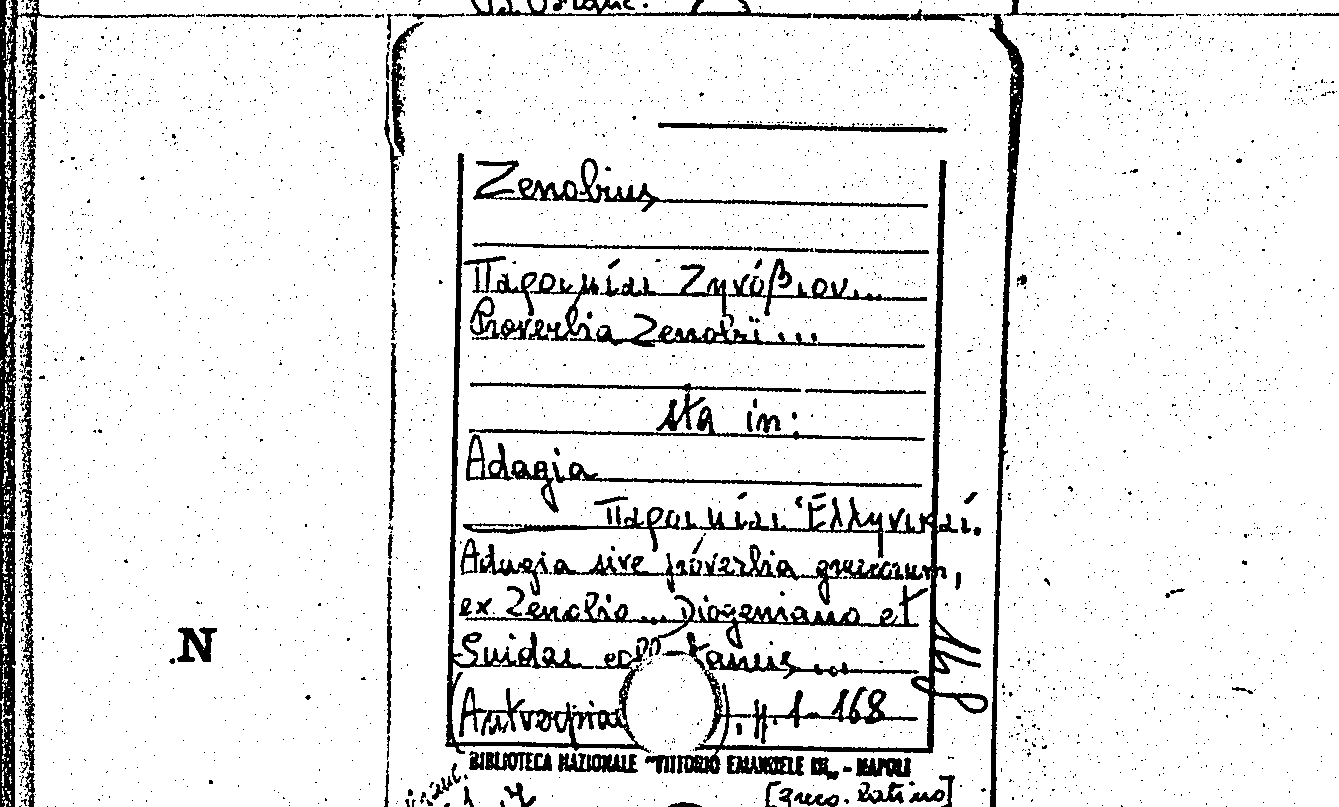 Zenobius
Παροιμίαι Ζηνόβιου...
Proverbia Zenobii...
sta in:
Adagia
Παροιμίαι Ἑλληνικαί.
Adagia sive proverbia graecorum,
ex Zenobio... Diogeniano et
Suidae
N
p. 1-168
BIBLIOTECA NAZIONALE "VITTORIO EMANUELE III„ - NAPOLI
[greco. Latino]